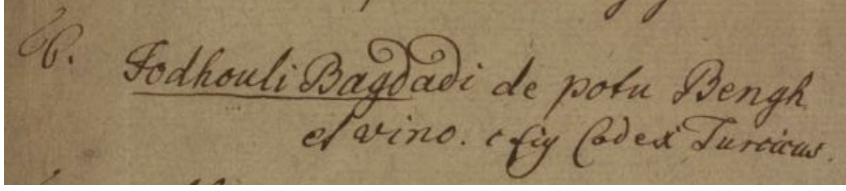 66. Fodhouli Bagdadi de potu Bengh
et vino. c fig Codex Turcicus.